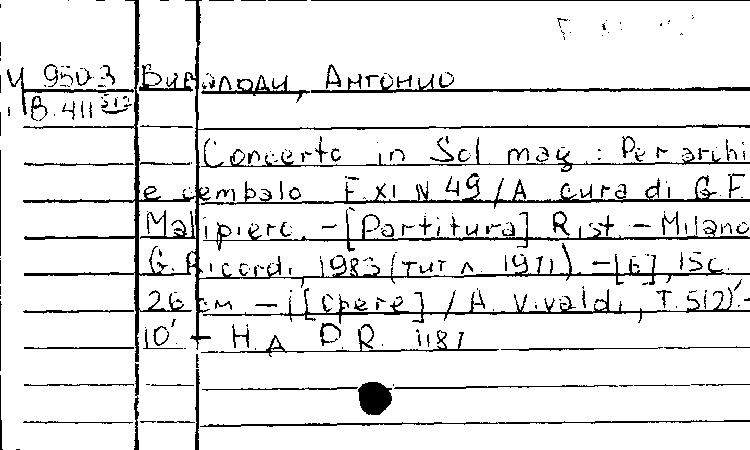 И 9503 Вивальди, Антонио
В.411
Concerto in Sol mag : Per archi
e cembalo F. XI N 49 / A cura di G. F.
Malipiero. – [Partitura] Rist. – Milano
G. Ricordi, 1983 (тит л. 1971). – [6], 15 с.
26 см – ([Opere] / A. Vivaldi, T. 512).-
10'. – Н. Д. P. R. 1187